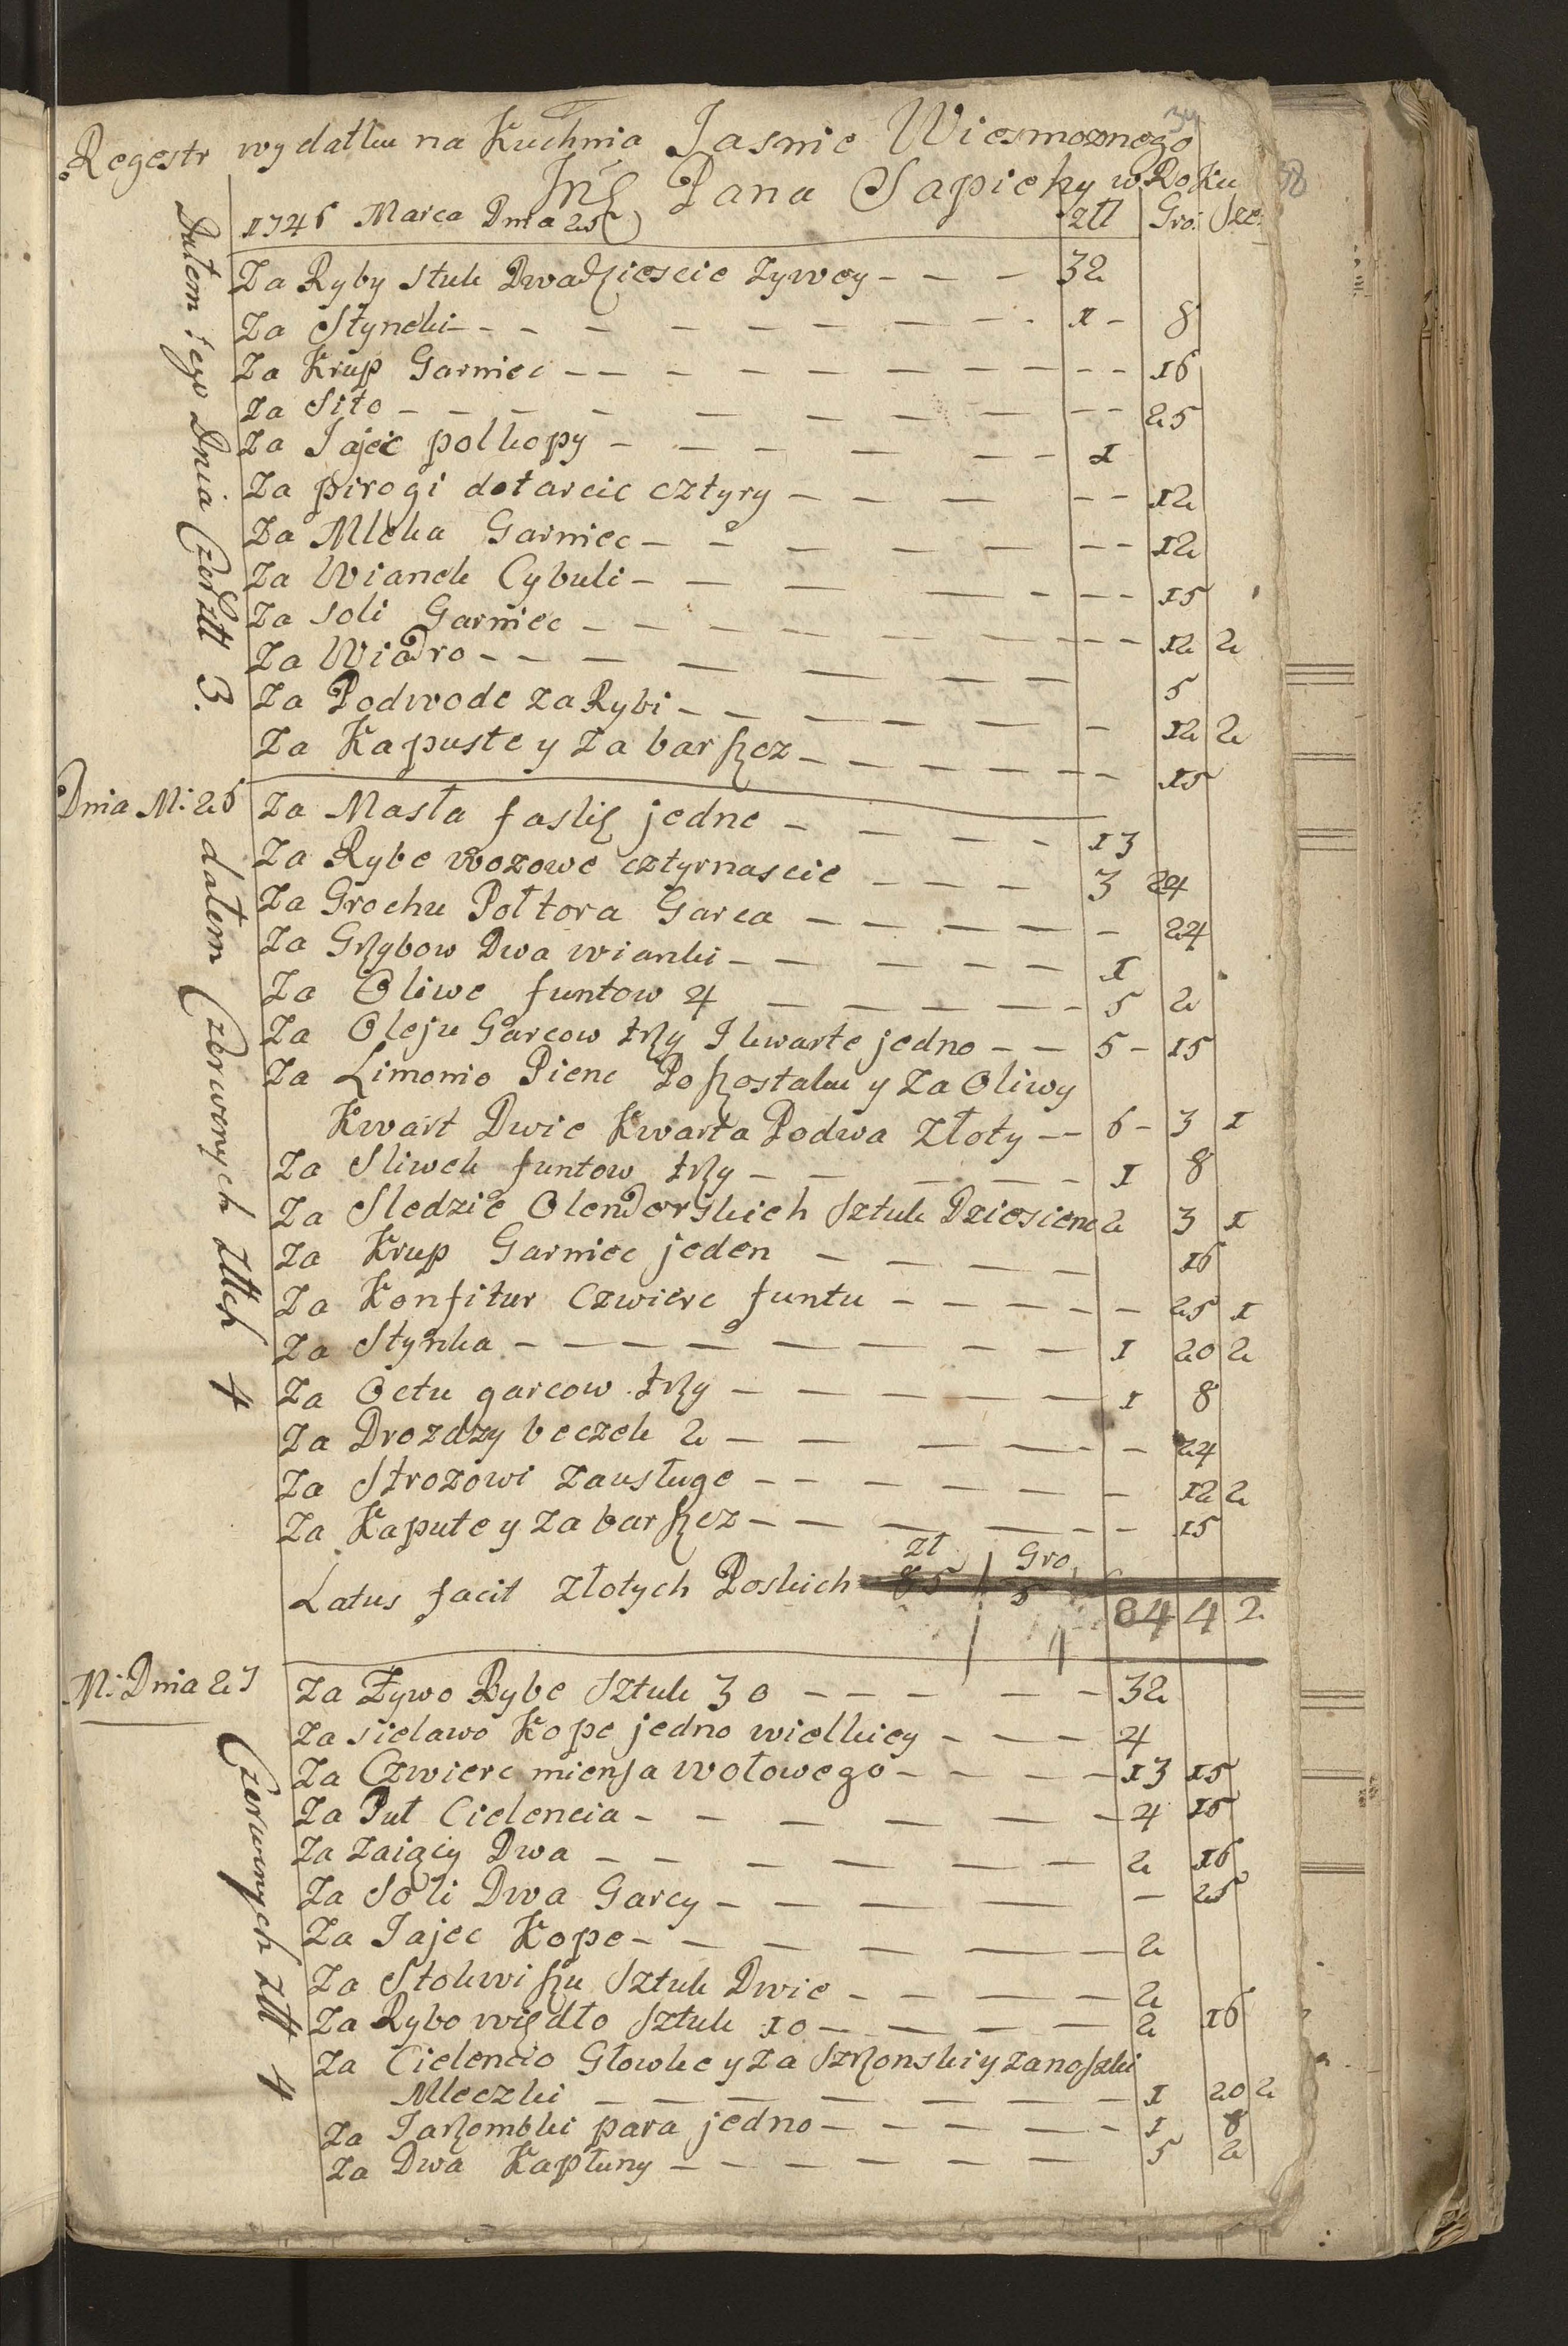 34
38
Regestr wydatku na Kuchnia Jasnie Wiesmoznego
Pana Sapiehy w Roku
1746 Marca Dnia 25 Złł Gro: Sze:
Za Ryby stuk Dwadziescie zywey 32
Za Stynchi 1 8
Za Krup Garniec 16
Za Sito 25
Za Jajec polkopy 1
Za pirogi dotarcic cztyry 12
Za Mleka Garniec 12
Za Wianek Cybuli 15
Za soli Garniec 12 2
Za Wiadro 5
Za Podwode za Rybi 12 2
Za Kapuste y Za barszcz 15
Dałem iego Dnia Czer Złł 3.
Dnia M: 26 Za Masła faslię jedne 13
Za Rybe wozowe cztyrnascie 3 24
Za Grochu Połtora Garca 24
Za Grzybow Dwa wianki 1
Za Oliwe funtow 4 5 2
Za Oleju Garcow trzy I kwarte jedno 5 15
Za Limonio Pienc Poszostaku y Za Oliwy
Kwart Dwie Kwarta Podwa Złoty 6 3 1
Za Sliwek funtow trzy 1 8
Za Sledzie Olenderskich Sztuk Dziesienc 2 3 1
Za Krup Garniec jeden 16
Za Konfitur Czwierc funtu 25 1
Za Stynka 1 20 2
Za Octu garcow trzy 1 8
Za Drozdzy beczek 2 24
Za Strozowi zausługe 12 2
Za Kapute y Za barszcz 15
dałem Czerwonych Złłch 4
Zł Gro
Latus facit Złotych Poskich 85 5 84 4 2
M: Dnia 27 Za Żywo Rybe Sztuk 30 32
Za sielawo Kope jedno wielkiey 4
Za Czwierc miensa wołowego 13 15
Za Puł Cielencia 4 15
Za Zaięcy Dwa 2 16
Za Soli Dwa Garcy 25
Za Jajec Kope 2
Za Stokwiszu Sztuk Dwie 2
Za Rybo więdło Sztuk 10 2 16
Za Cielencio Głowke y Za Szrzonski y Zanoszki
Mleczki 1 20 2
Za Jarzombki para jedno 1 8
Za Dwa Kapłuny 5 2
Czerwonych Złł 4